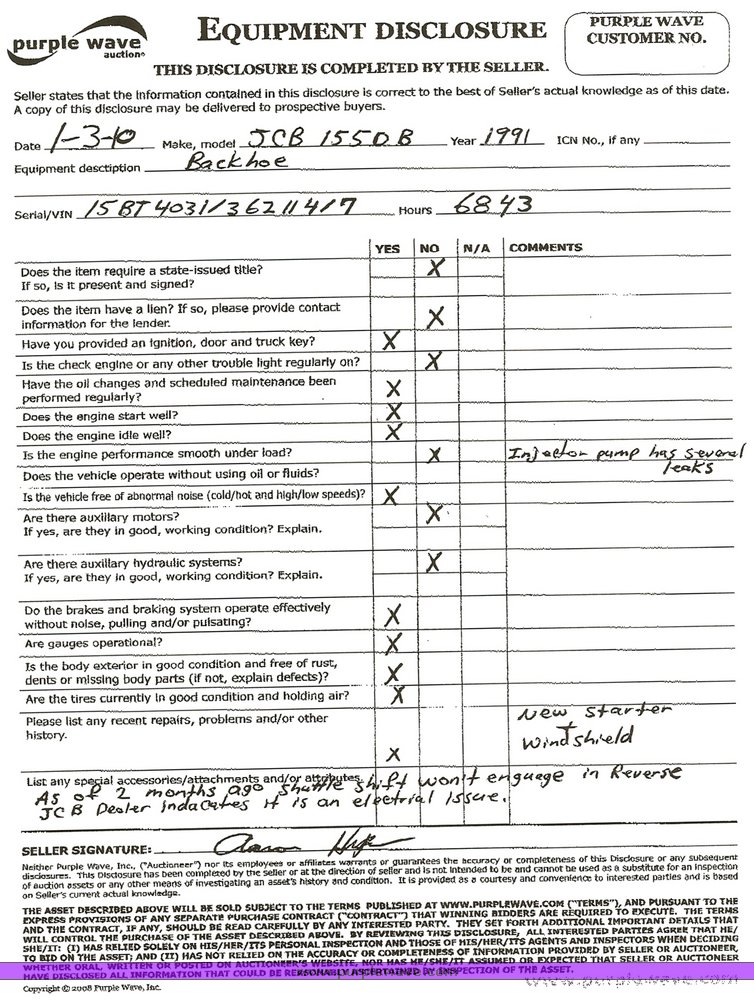 purple wave
auction®
EQUIPMENT DISCLOSURE
PURPLE WAVE
CUSTOMER NO.
THIS DISCLOSURE IS COMPLETED BY THE SELLER.
Seller states that the information contained in this disclosure is correct to the best of Seller's actual knowledge as of this date.
A copy of this disclosure may be delivered to prospective buyers.
Date 1-3-10 Make, model JCB 1550B Year 1991 ICN No., if any
Equipment description Backhoe
Serial/VIN 15BT4031/36211417 Hours 6843
YES NO N/A COMMENTS
Does the item require a state-issued title? X
If so, is it present and signed?
Does the item have a lien? If so, please provide contact
information for the lender. X
Have you provided an ignition, door and truck key? X
Is the check engine or any other trouble light regularly on? X
Have the oil changes and scheduled maintenance been
performed regularly? X
Does the engine start well? X
Does the engine idle well? X
Is the engine performance smooth under load? X Injector pump has several
leaks
Does the vehicle operate without using oil or fluids?
Is the vehicle free of abnormal noise (cold/hot and high/low speeds)? X
Are there auxillary motors? X
If yes, are they in good, working condition? Explain.
Are there auxillary hydraulic systems? X
If yes, are they in good, working condition? Explain.
Do the brakes and braking system operate effectively
without noise, pulling and/or pulsating? X
Are gauges operational? X
Is the body exterior in good condition and free of rust,
dents or missing body parts (if not, explain defects)? X
Are the tires currently in good condition and holding air? X
Please list any recent repairs, problems and/or other
history. X
New starter
+
Windshield
List any special accessories/attachments and/or attributes.
As of 2 months ago shuttle shift won't enguage in Reverse
JCB Dealer indacates it is an electrial Issue.
SELLER SIGNATURE:
Neither Purple Wave, Inc., ("Auctioneer") nor its employees or affiliates warrants or guarantees the accuracy or completeness of this Disclosure or any subsequent
disclosures. This Disclosure has been completed by the seller or at the direction of seller and is not intended to be and cannot be used as a substitute for an inspection
of auction assets or any other means of investigating an asset's history and condition. It is provided as a courtesy and convenience to interested parties and is based
on Seller's current actual knowledge.
THE ASSET DESCRIBED ABOVE WILL BE SOLD SUBJECT TO THE TERMS PUBLISHED AT WWW.PURPLEWAVE.COM ("TERMS"), AND PURSUANT TO THE
EXPRESS PROVISIONS OF ANY SEPARATE PURCHASE CONTRACT ("CONTRACT") THAT WINNING BIDDERS ARE REQUIRED TO EXECUTE. THE TERMS
AND THE CONTRACT, IF ANY, SHOULD BE READ CAREFULLY BY ANY INTERESTED PARTY. THEY SET FORTH ADDITIONAL IMPORTANT DETAILS THAT
WILL CONTROL THE PURCHASE OF THE ASSET DESCRIBED ABOVE. BY REVIEWING THIS DISCLOSURE, ALL INTERESTED PARTIES AGREE THAT HE/
SHE/IT: (I) HAS RELIED SOLELY ON HIS/HER/ITS PERSONAL INSPECTION AND THOSE OF HIS/HER/ITS AGENTS AND INSPECTORS WHEN DECIDING
TO BID ON THE ASSET; AND (II) HAS NOT RELIED ON THE ACCURACY OR COMPLETENESS OF INFORMATION PROVIDED BY SELLER OR AUCTIONEER,
WHETHER ORAL, WRITTEN OR POSTED ON AUCTIONEER'S WEBSITE, NOR HAS HE/SHE/IT ASSUMED OR EXPECTED THAT SELLER OR AUCTIONEER
HAVE DISCLOSED ALL INFORMATION THAT COULD BE REASONABLY ASCERTAINED BY INSPECTION OF THE ASSET.
Copyright © 2008 Purple Wave, Inc.
www.purplewave.com